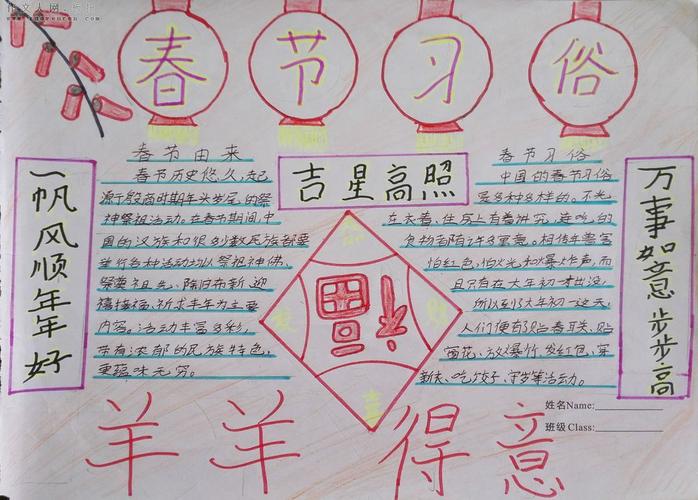 作文人网
春节习俗
一帆风顺年年好
吉星高照
万事如意步步高
春节由来
春节历史悠久,起
源于殷商时期年头岁尾的祭
神祭祖活动。在春节期间,中
国的汉族和很多少数民族都要
举行各种活动以祭祖神佛、
祭奠祖先、除旧布新、迎
禧接福、祈求丰年为主要
内容。活动丰富多彩,
带有浓郁的民族特色,
更蕴味无穷。
福
喜
春节习俗
中国的春节习俗
是多种多样的。不光
在衣着、住房上有着讲究,
食物都有许多寓意。相传年兽害
怕红色,怕火光和爆炸声,而
且只有在大年初一才出没,
所以到了大年初一这天,
人们便有了贴春耳关、贴
窗花、放爆竹、发红包、穿
新衣、吃饺子、守岁等活动。
姓名Name:
班级Class:
羊羊得意